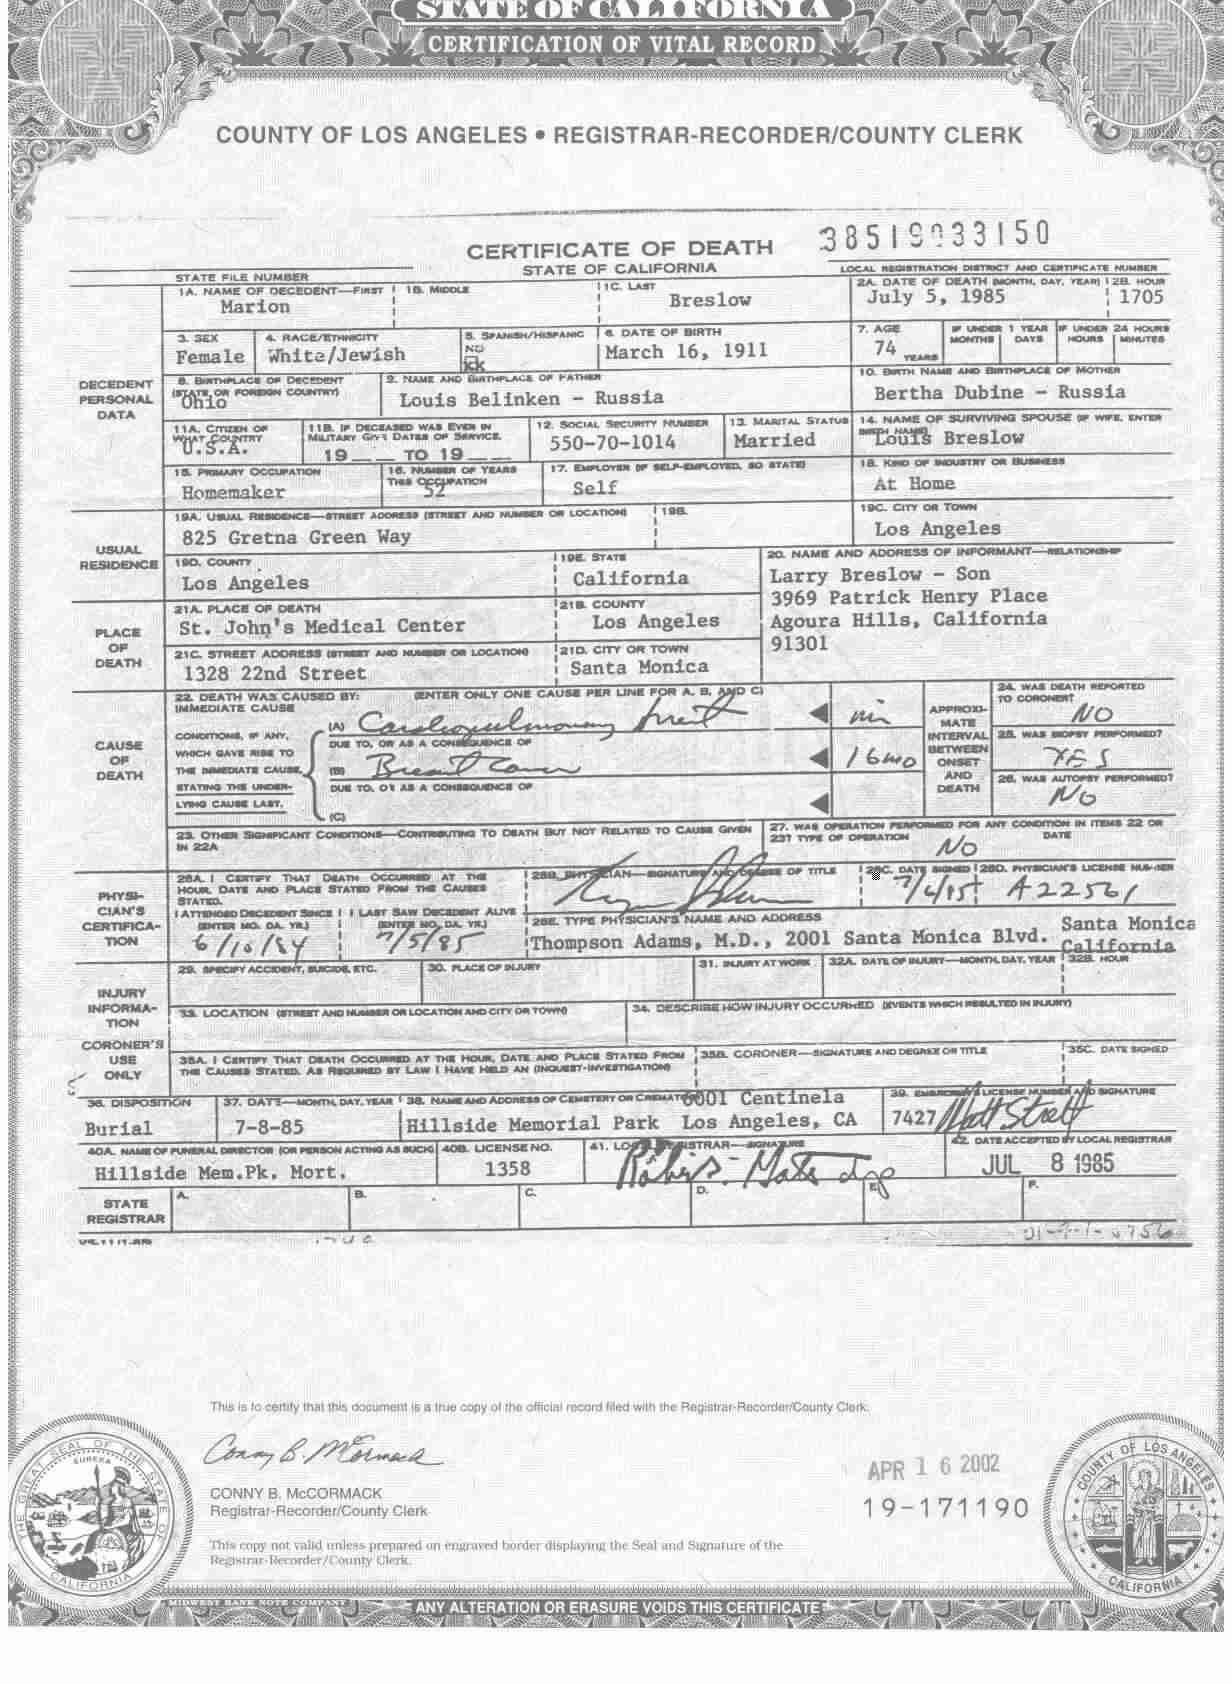 STATE OF CALIFORNIA
CERTIFICATION OF VITAL RECORD
COUNTY OF LOS ANGELES • REGISTRAR-RECORDER/COUNTY CLERK
CERTIFICATE OF DEATH
STATE OF CALIFORNIA
STATE FILE NUMBER
LOCAL REGISTRATION DISTRICT AND CERTIFICATE NUMBER
DECEDENT PERSONAL DATA
1A. NAME OF DECEDENT—FIRST
Marion
1B. MIDDLE
1C. LAST
Breslow
2A. DATE OF DEATH (MONTH, DAY, YEAR)
July 5, 1985
2B. HOUR
1705
3. SEX
Female
4. RACE/ETHNICITY
White/Jewish
5. SPANISH/HISPANIC
NO
6. DATE OF BIRTH
March 16, 1911
7. AGE
74 YEARS
IF UNDER 1 YEAR
MONTHS DAYS
IF UNDER 24 HOURS
HOURS MINUTES
8. BIRTHPLACE OF DECEDENT (STATE OR FOREIGN COUNTRY)
Ohio
9. NAME AND BIRTHPLACE OF FATHER
Louis Belinken - Russia
10. BIRTH NAME AND BIRTHPLACE OF MOTHER
Bertha Dubine - Russia
11A. CITIZEN OF WHAT COUNTRY
U.S.A.
11B. IF DECEASED WAS EVER IN MILITARY GIVE DATES OF SERVICE.
19___ TO 19___
12. SOCIAL SECURITY NUMBER
550-70-1014
13. MARITAL STATUS
Married
14. NAME OF SURVIVING SPOUSE (IF WIFE, ENTER BIRTH NAME)
Louis Breslow
15. PRIMARY OCCUPATION
Homemaker
16. NUMBER OF YEARS THIS OCCUPATION
52
17. EMPLOYER (IF SELF-EMPLOYED, SO STATE)
Self
18. KIND OF INDUSTRY OR BUSINESS
At Home
USUAL RESIDENCE
19A. USUAL RESIDENCE—STREET ADDRESS (STREET AND NUMBER OR LOCATION)
825 Gretna Green Way
19B.
19C. CITY OR TOWN
Los Angeles
19D. COUNTY
Los Angeles
19E. STATE
California
20. NAME AND ADDRESS OF INFORMANT—RELATIONSHIP
Larry Breslow - Son
3969 Patrick Henry Place
Agoura Hills, California
91301
PLACE OF DEATH
21A. PLACE OF DEATH
St. John's Medical Center
21B. COUNTY
Los Angeles
21C. STREET ADDRESS (STREET AND NUMBER OR LOCATION)
1328 22nd Street
21D. CITY OR TOWN
Santa Monica
CAUSE OF DEATH
22. DEATH WAS CAUSED BY: (ENTER ONLY ONE CAUSE PER LINE FOR A, B, AND C)
IMMEDIATE CAUSE
CONDITIONS, IF ANY, WHICH GAVE RISE TO THE IMMEDIATE CAUSE, STATING THE UNDERLYING CAUSE LAST.
(A) Cardiopulmonary Arrest
min
DUE TO, OR AS A CONSEQUENCE OF
(B) Breast Cancer
16 mo
DUE TO, OR AS A CONSEQUENCE OF
(C)
APPROXIMATE INTERVAL BETWEEN ONSET AND DEATH
24. WAS DEATH REPORTED TO CORONER?
NO
25. WAS BIOPSY PERFORMED?
YES
26. WAS AUTOPSY PERFORMED?
NO
23. OTHER SIGNIFICANT CONDITIONS—CONTRIBUTING TO DEATH BUT NOT RELATED TO CAUSE GIVEN IN 22A
27. WAS OPERATION PERFORMED FOR ANY CONDITION IN ITEMS 22 OR 23? TYPE OF OPERATION DATE
NO
PHYSICIAN'S CERTIFICATION
28A. I CERTIFY THAT DEATH OCCURRED AT THE HOUR, DATE AND PLACE STATED FROM THE CAUSES STATED.
I ATTENDED DECEDENT SINCE (ENTER MO. DA. YR.)
6/10/84
I LAST SAW DECEDENT ALIVE (ENTER MO. DA. YR.)
7/5/85
28B. PHYSICIAN—SIGNATURE AND DEGREE OF TITLE
28C. DATE SIGNED
7/6/85
28D. PHYSICIAN'S LICENSE NUMBER
A22561
28E. TYPE PHYSICIAN'S NAME AND ADDRESS
Thompson Adams, M.D., 2001 Santa Monica Blvd. Santa Monica California
INJURY INFORMATION
CORONER'S USE ONLY
29. SPECIFY ACCIDENT, SUICIDE, ETC.
30. PLACE OF INJURY
31. INJURY AT WORK
32A. DATE OF INJURY—MONTH, DAY, YEAR
32B. HOUR
33. LOCATION (STREET AND NUMBER OR LOCATION AND CITY OR TOWN)
34. DESCRIBE HOW INJURY OCCURRED (EVENTS WHICH RESULTED IN INJURY)
35A. I CERTIFY THAT DEATH OCCURRED AT THE HOUR, DATE AND PLACE STATED FROM THE CAUSES STATED. AS REQUIRED BY LAW I HAVE HELD AN (INQUEST-INVESTIGATION)
35B. CORONER—SIGNATURE AND DEGREE OR TITLE
35C. DATE SIGNED
36. DISPOSITION
Burial
37. DATE—MONTH, DAY, YEAR
7-8-85
38. NAME AND ADDRESS OF CEMETERY OR
6001 Centinela
Hillside Memorial Park Los Angeles, CA
39. EMBALMER'S LICENSE NUMBER AND SIGNATURE
7427
40A. NAME OF FUNERAL DIRECTOR (OR PERSON ACTING AS SUCH)
Hillside Mem.Pk. Mort.
40B. LICENSE NO.
1358
41. LOCAL REGISTRAR—SIGNATURE
42. DATE ACCEPTED BY LOCAL REGISTRAR
JUL 8 1985
STATE REGISTRAR
A. B. C. D. E. F.
This is to certify that this document is a true copy of the official record filed with the Registrar-Recorder/County Clerk.
Conny B. McCormack
CONNY B. McCORMACK
Registrar-Recorder/County Clerk
APR 16 2002
19-171190
This copy not valid unless prepared on engraved border displaying the Seal and Signature of the
Registrar-Recorder/County Clerk.
THE GREAT SEAL OF THE STATE OF CALIFORNIA
EUREKA
COUNTY OF LOS ANGELES
CALIFORNIA
MIDWEST BANK NOTE COMPANY
ANY ALTERATION OR ERASURE VOIDS THIS CERTIFICATE